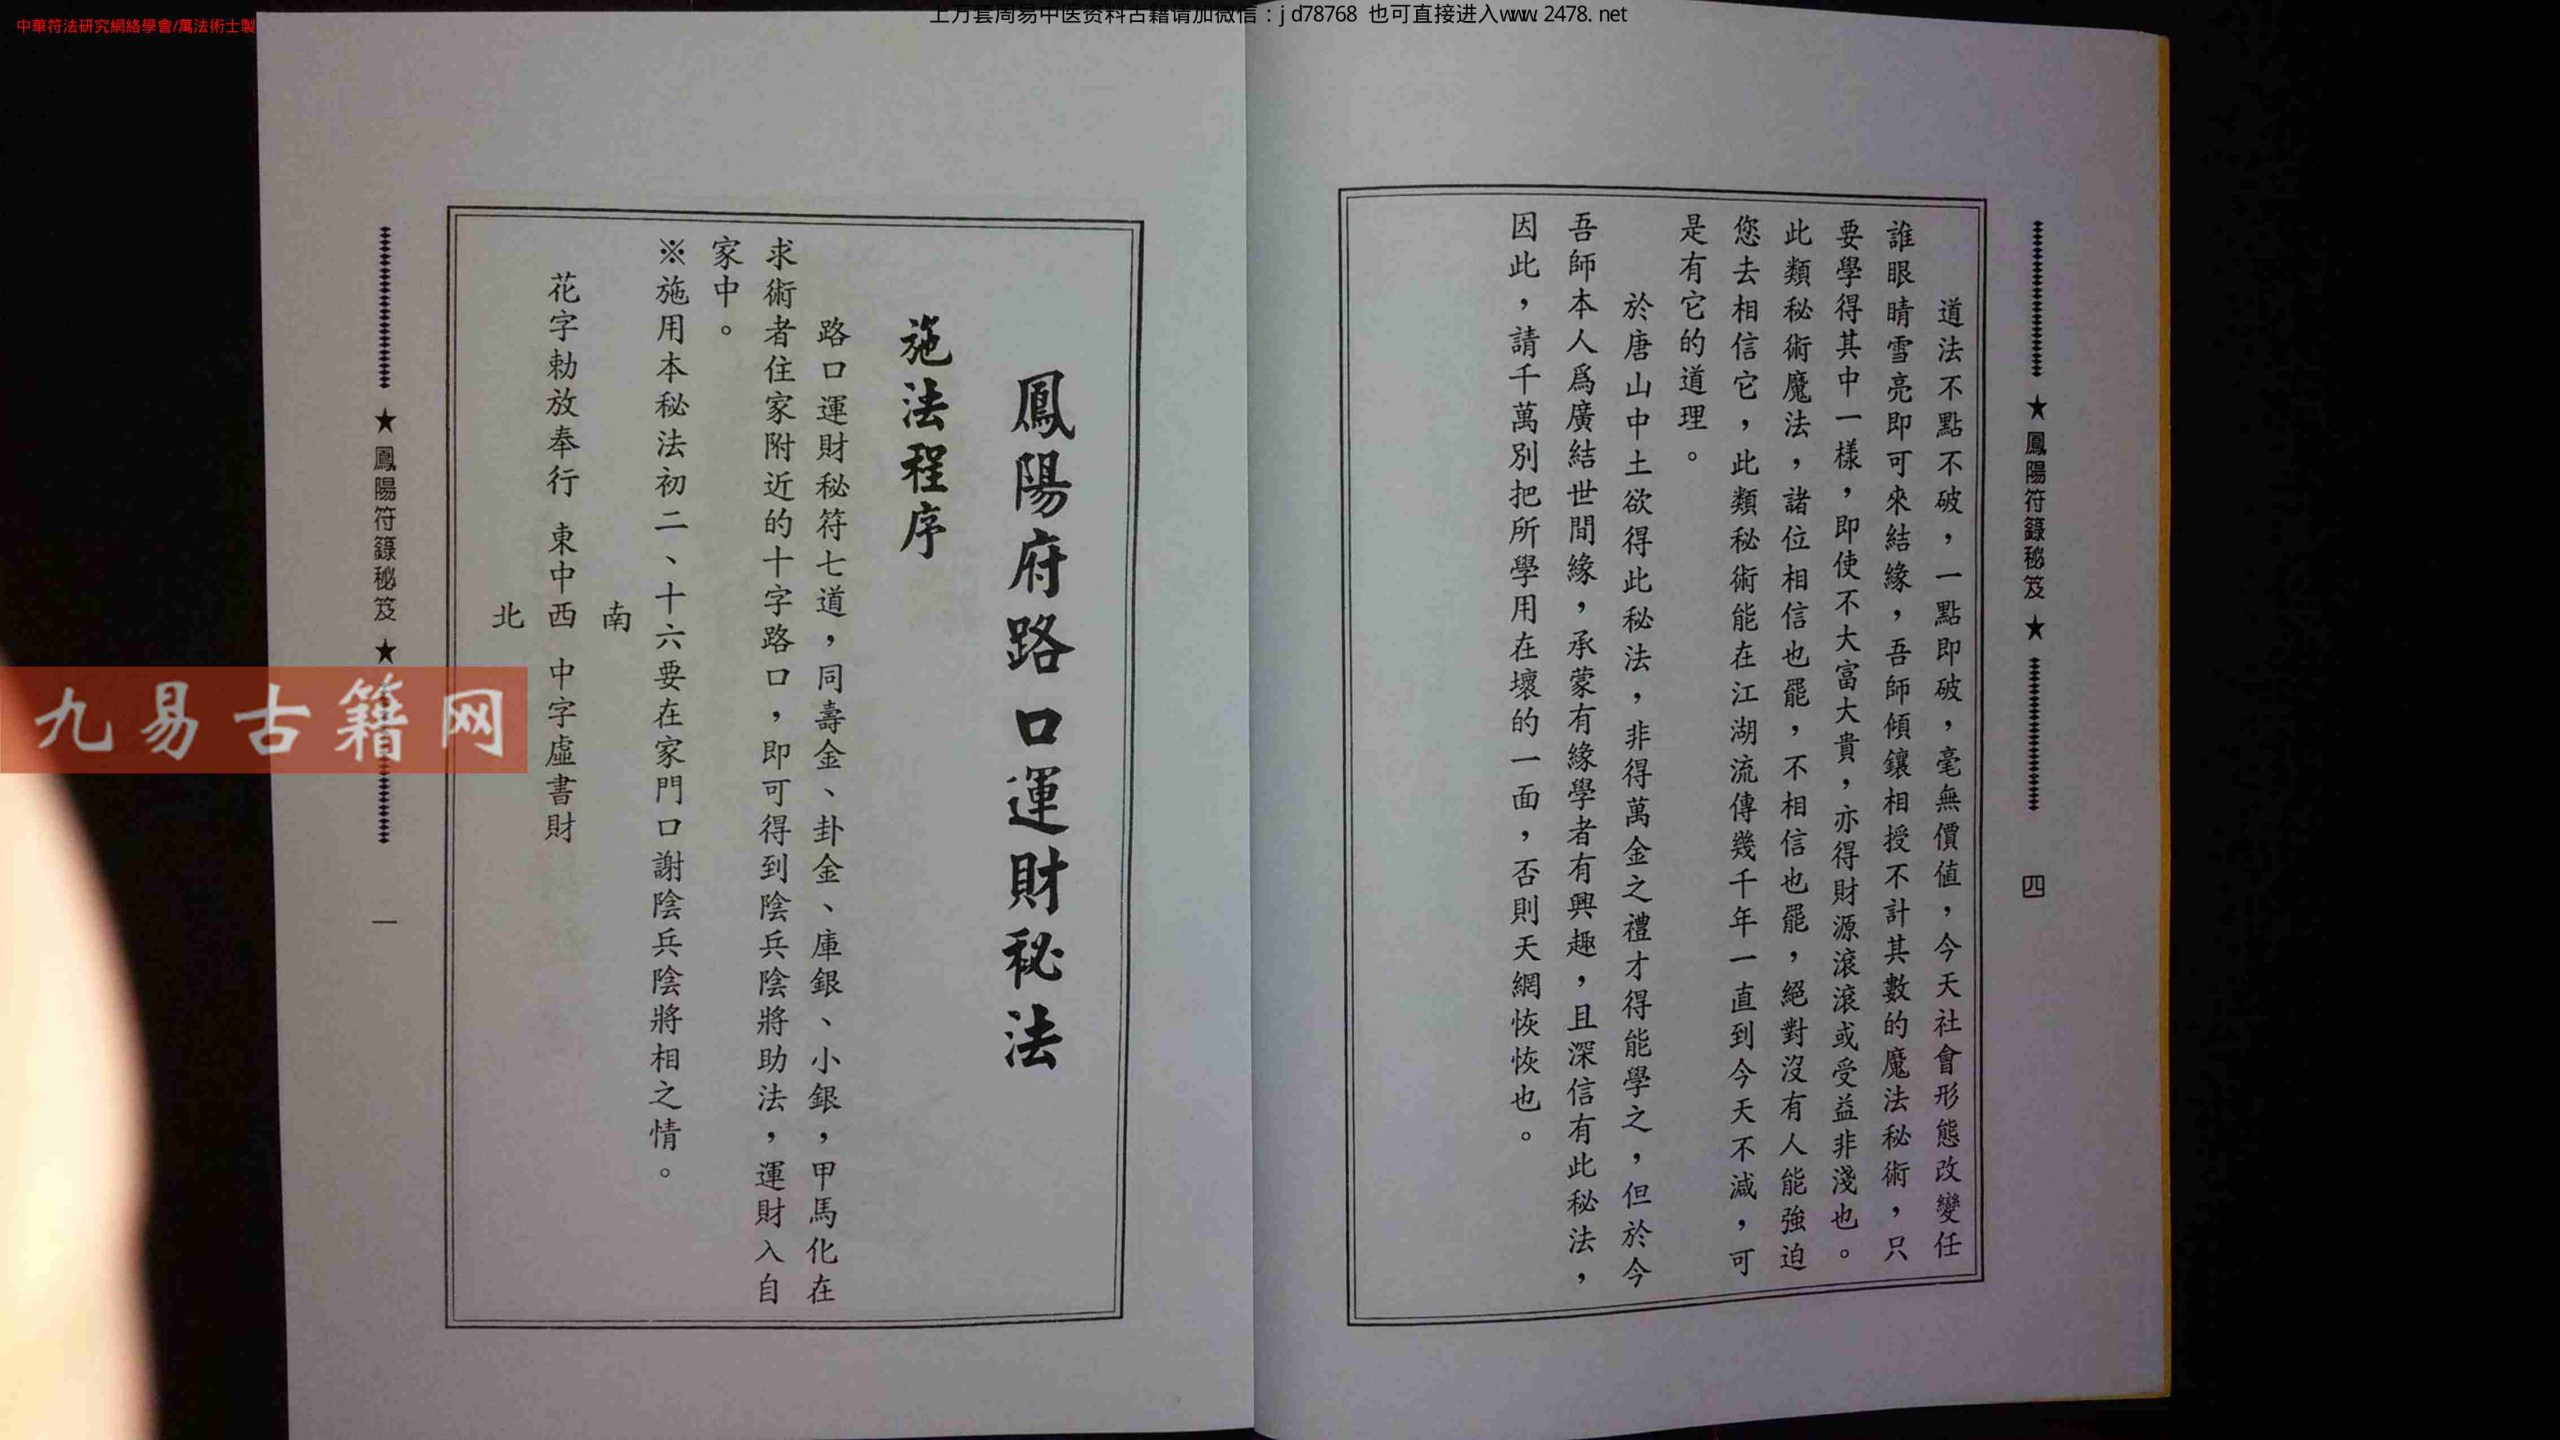 上万套周易中医资料古籍请加微信：jd78768 也可直接进入www.2478.net
中華符法研究網絡學會/萬法術士製
★鳳陽符籙秘笈★
四
道法不點不破，一點即破，毫無價值，今天社會形態改變任
誰眼睛雪亮即可來結緣，吾師傾鑲相授不計其數的魔法秘術，只
要學得其中一樣，即使不大富大貴，亦得財源滾滾或受益非淺也。
此類秘術魔法，諸位相信也罷，不相信也罷，絕對沒有人能強迫
您去相信它，此類秘術能在江湖流傳幾千年一直到今天不減，可
是有它的道理。
於唐山中土欲得此秘法，非得萬金之禮才得能學之，但於今
吾師本人爲廣結世間緣，承蒙有緣學者有興趣，且深信有此秘法，
因此，請千萬別把所學用在壞的一面，否則天網恢恢也。
鳳陽府路口運財秘法
施法程序
路口運財秘符七道，同壽金、卦金、庫銀、小銀，甲馬化在
求術者住家附近的十字路口，即可得到陰兵陰將助法，運財入自
家中。
※施用本秘法初二、十六要在家門口謝陰兵陰將相之情。
南
花字勅放奉行 東中西 中字虛書財
北
★鳳陽符籙秘笈★
一
九易古籍网